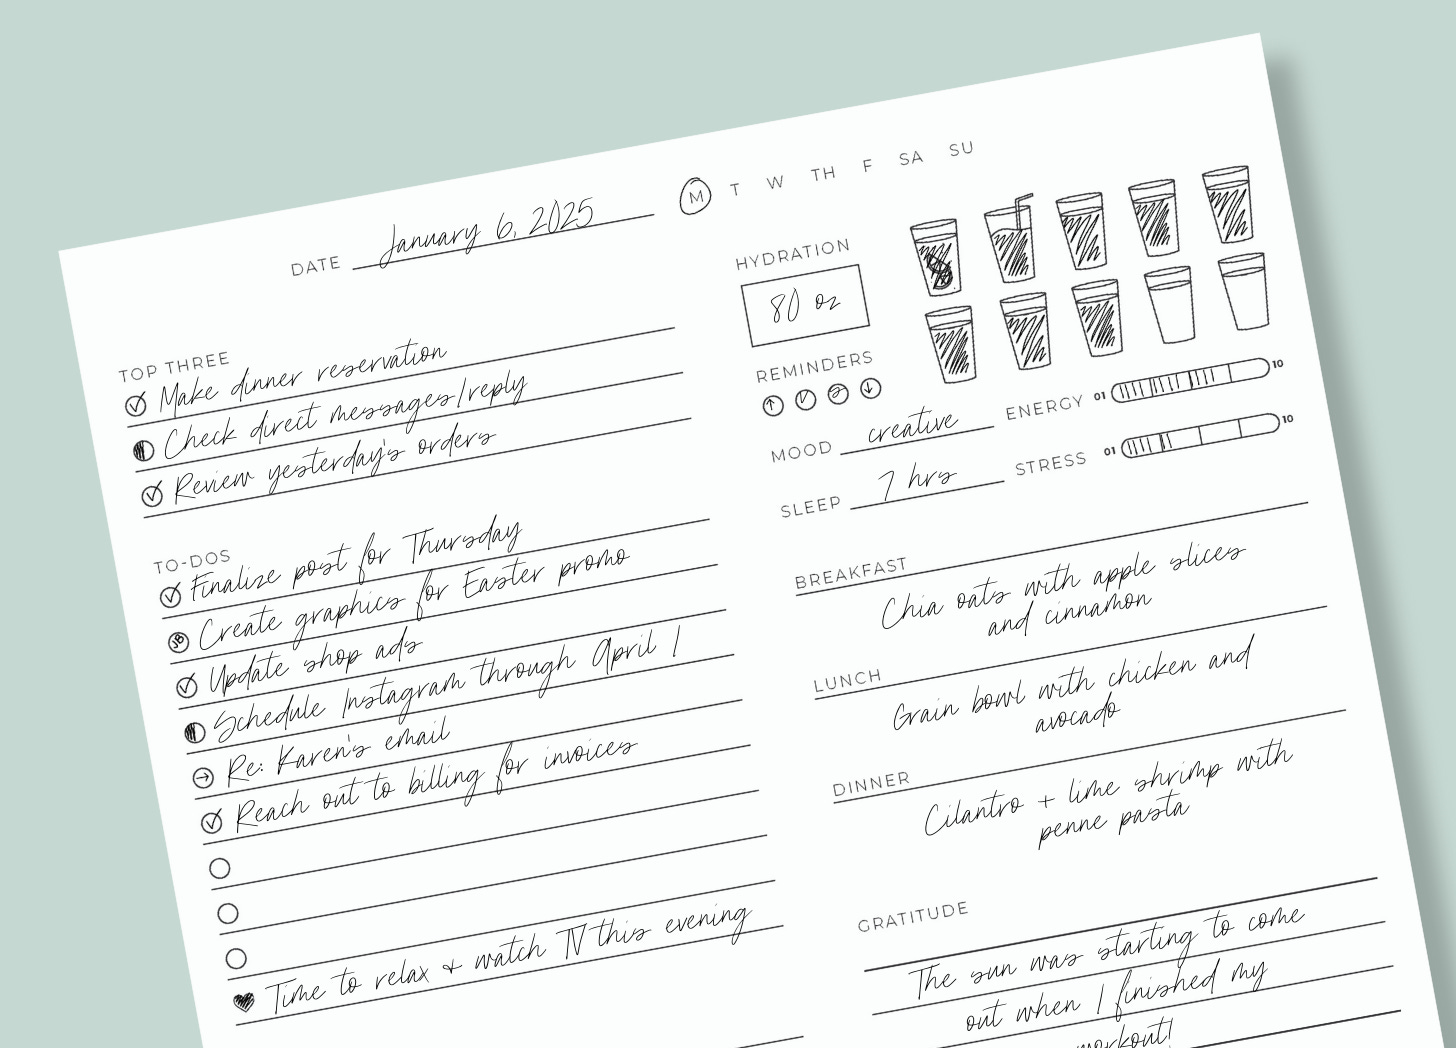 DATE January 6, 2025
M T W TH F SA SU
TOP THREE
Make dinner reservation
Check direct messages/reply
Review yesterday's orders
TO-DOS
Finalize post for Thursday
JB Create graphics for Easter promo
Update shop ads
Schedule Instagram through April 1
Re: Karen's email
Reach out to billing for invoices
Time to relax + watch TV this evening
HYDRATION
80 oz
8
REMINDERS
MOOD creative
ENERGY 01 10
SLEEP 7 hrs
STRESS 01 10
BREAKFAST
Chia oats with apple slices
and cinnamon
LUNCH
Grain bowl with chicken and
avocado
DINNER
Cilantro + lime shrimp with
penne pasta
GRATITUDE
The sun was starting to come
out when I finished my
workout!